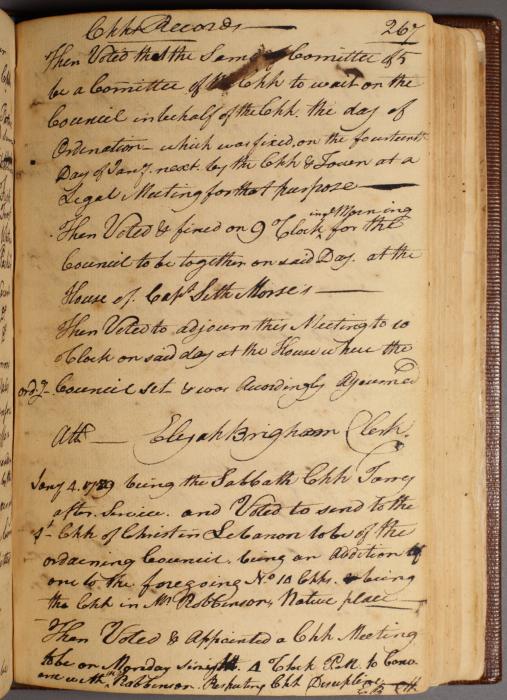 Chh Records — 267
Then Voted that the Same Comittee of 5
be a Comittee of the Chh to wait on the
Council in behalf of the Chh. the day of
Ordination — which was fixed, on the fourteenth
Day of Jany. next. by the Chh & Town at a
Legal Meeting for that purpose —
Then Voted & fixed on 9 o Clock in ye Morning for the
Council to be together on said Day. at the
House of Capt. Seth Morse's —
Then Voted to adjourn this Meeting to 10
o Clock on said day at the House where the
ordg- Council set & was Acordingly Adjourned
Att — Elijah Brigham Clerk.
Jany 4. 1789 being the Sabbath Chh Tarry
after Service. and Voted to send to the
1st- Chh of Christ in Lebanon to be of the
ordaening Council. being an Addition of
one to the foregoing No. 10 Chhs. & being
the Chh in Mr Robbinson's Native place —
Then Voted & Appointed a Chh Meeting
to be on Monday 1 Clock P.M. to Conv
one with Mr Robbinson. Respecting Chh Discipline.
E.B. Clk